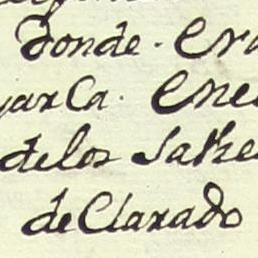 donde. era
yarca. ene
de los Sake
deClarado